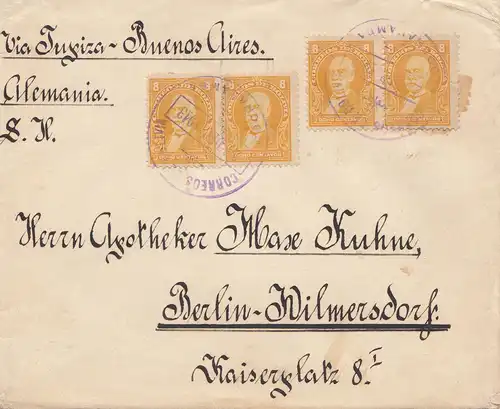 Via Tupiza - Buenos Aires.
Alemania.
S. H.
8 8 8 8
8 8 8 8
CORREOS
Herrn Apotheker Max Kuhne,
Berlin-Wilmersdorf.
Kaiserplatz 8.I